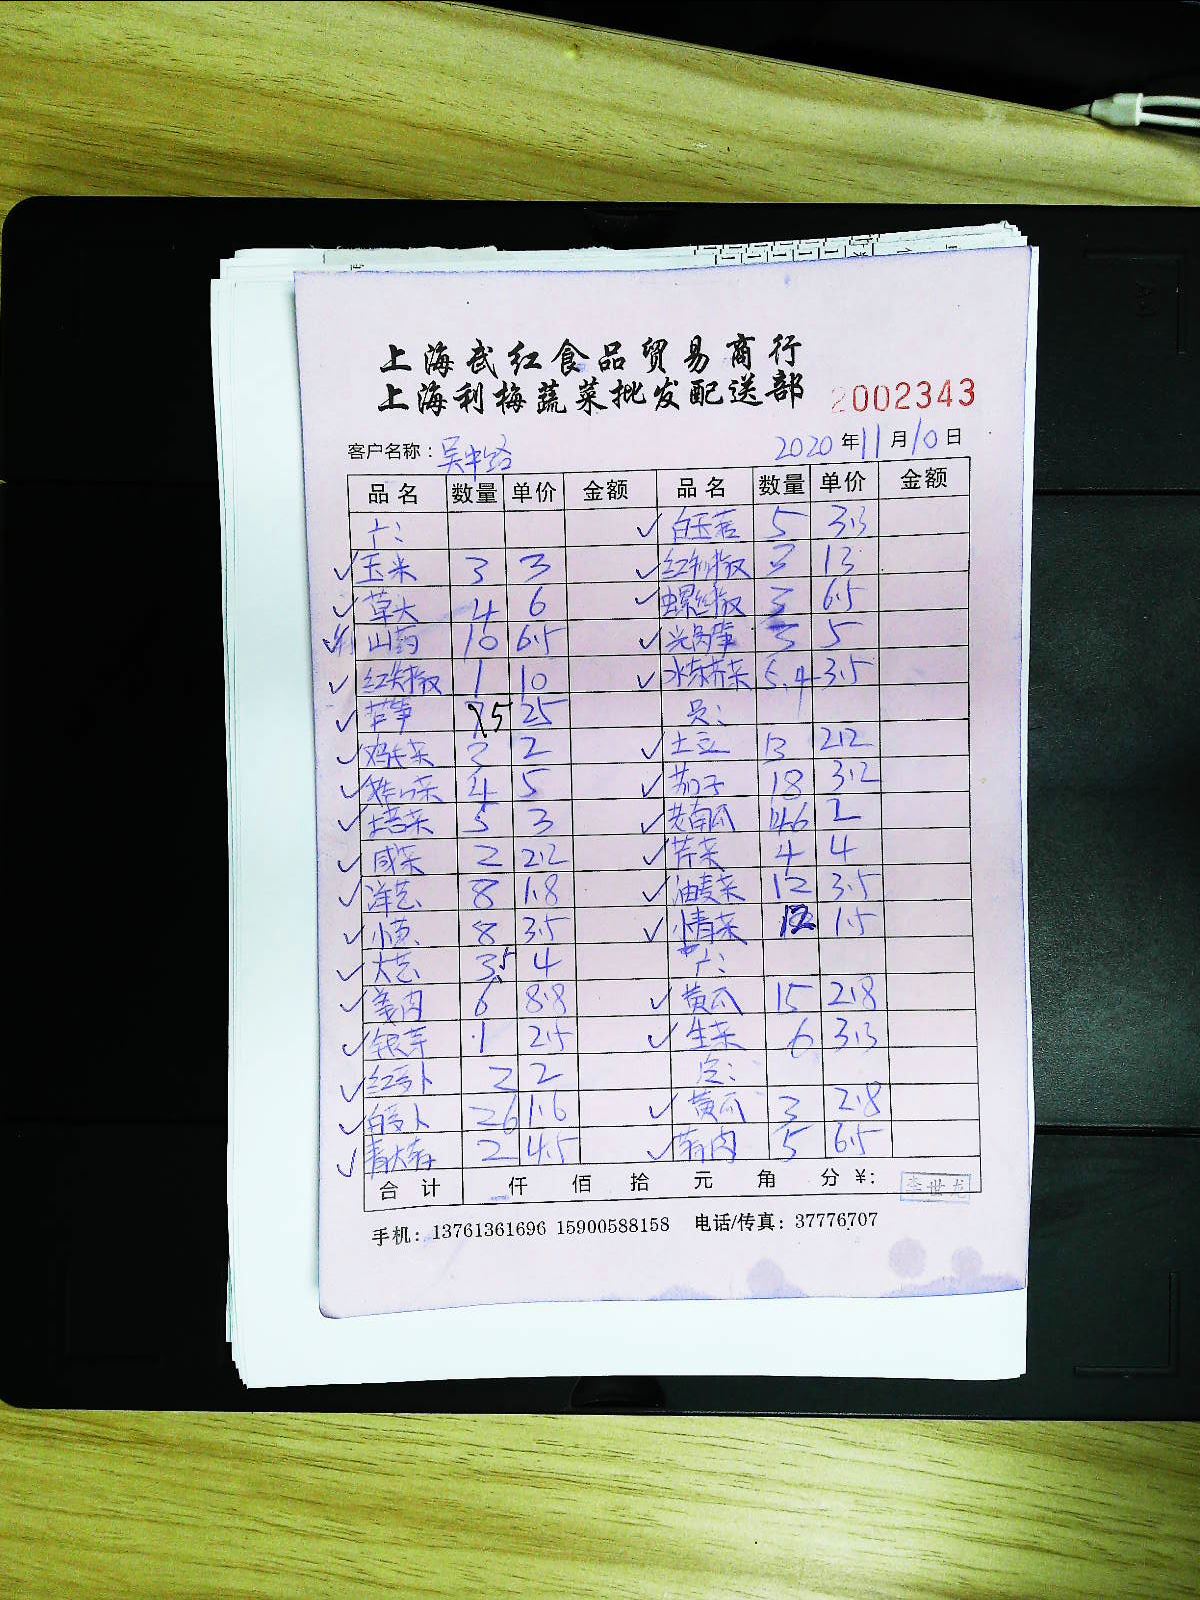 上海武红食品贸易商行
上海利梅蔬菜批发配送部 2002343
客户名称：吴中路 2020年11月10日
品名 数量 单价 金额 品名 数量 单价 金额
广： 白玉菇 5 3.3
玉米 3 3 红利椒 13
草头 4 6 螺丝椒 3 6.5
山药 10 6.5 光莴笋 5
红尖椒 1 10 水冻荠菜 5.4 3.5
25 员：
鸡毛菜 3 2 土豆 13 2.2
4 5 茄子 18 3.2
5 3 老南瓜 14.6 2
咸菜 2 2.2 芹菜 4 4
洋芋 8 1.8 油麦菜 12 3.5
小葱 8 3.5 小青菜 12 1.5
3.5 4 广：
姜肉 6 8.8 黄瓜 15 2.8
银芽 1 2.5 生菜 6 3.3
红萝卜 2 2
白萝卜 26 1.6 黄瓜 3 2.8
2 4.5 5 6.5
合计 仟 佰 拾 元 角 分 ¥： 李世龙
手机：13761361696 15900588158 电话/传真：37776707